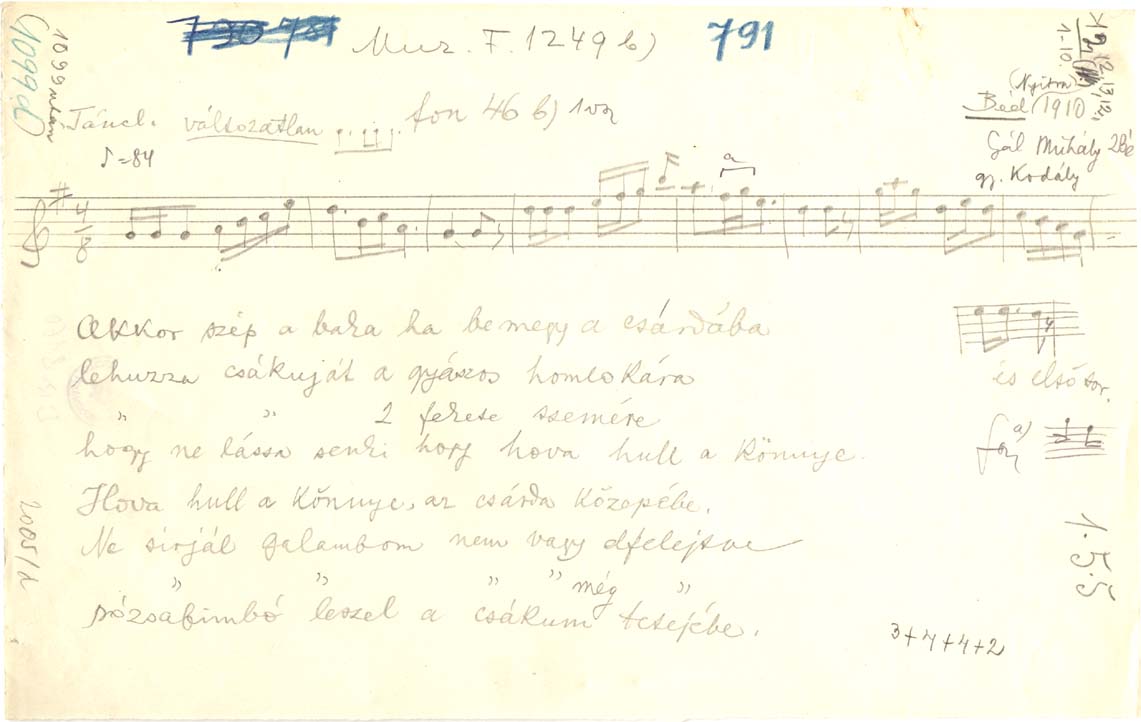 790 781 Muz. F. 1249 b) 791
(1099d)
1099 után
1-10.
Táncl. változatlan fon 46 b)
♪=84
(Nyitra)
Béd 1910
Gál Mihály
gy. Kodály
a
4/8
Akkor szép a baka ha bemegy a csárdába
lehuzza csákuját a gyászos homlokára
" " 2 fekete szemére
hogy ne lássa senki hogy hova hull a könnye.
Hova hull a könnye, az csárda közepébe.
Ne sirjál galambom nem vagy elfelejtve
" " " " még "
rózsabimbó leszel a csákum tetejébe.
és első sor.
fon a)
1.5.5
3+4+4+2
2005/1